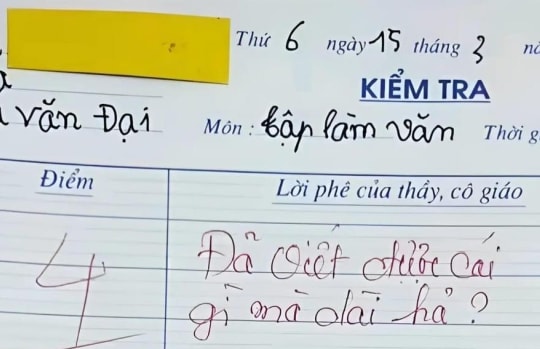 Thứ 6 ngày 15 tháng 3
KIỂM TRA
văn Đại
Môn : tập làm văn Thời g
Điểm
Lời phê của thầy, cô giáo
4
Đã viết được cái
gì mà dài hả ?